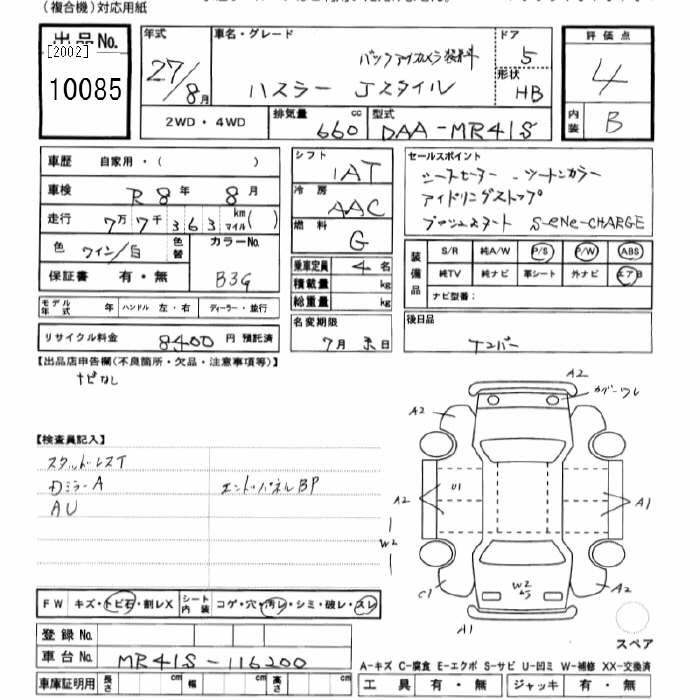 （複合機）対応用紙
出品No.
[2002]
10085
年式
27/8月
車名・グレード
バックアイカメラ装着車
ハスラー Jスタイル
ドア
5
形状
HB
評価点
4
内装
B
2WD・4WD
排気量
660
cc
型式
DAA-MR41S
車歴 自家用・（ ）
車検 R 8年 8月
走行 7万7千363 km マイル( )
色 ワイン/白
色替
カラーNo.
B3G
保証書 有・無
モデル年式 年 ハンドル 左・右 ディーラー・並行
リサイクル料金 8400円 預託済
シフト
IAT
冷房
AAC
燃料
G
乗車定員 4名
積載量 kg
総重量 kg
名変期限
7月末日
セールスポイント
シートヒーター ツートンカラー
アイドリングストップ
プッシュスタート S-eNe-CHARGE
装備品
S/R 純A/W P/S P/W ABS
純TV 純ナビ 革シート 外ナビ エアB
ナビ型番：
後日品
ナンバー
【出品店申告欄(不良箇所・欠品・注意事項等)】
ナビなし
【検査員記入】
スタッドレスT
DミラーA
エンドパネルBP
AU
A2
カバーワレ
A2
A2
U1
A1
W2
C1
W2
A2
A1
スペア
FW キズ・トビ石・割レX シート内装 コゲ・穴・汚レ・シミ・破レ・スレ
登録No.
車台No. MR41S-116200
車庫証明用 長さ cm 幅 cm 高さ cm
A-キズ C-腐食 E-エクボ S-サビ U-凹ミ W-補修 XX-交換済
工具 有・無 ジャッキ 有・無